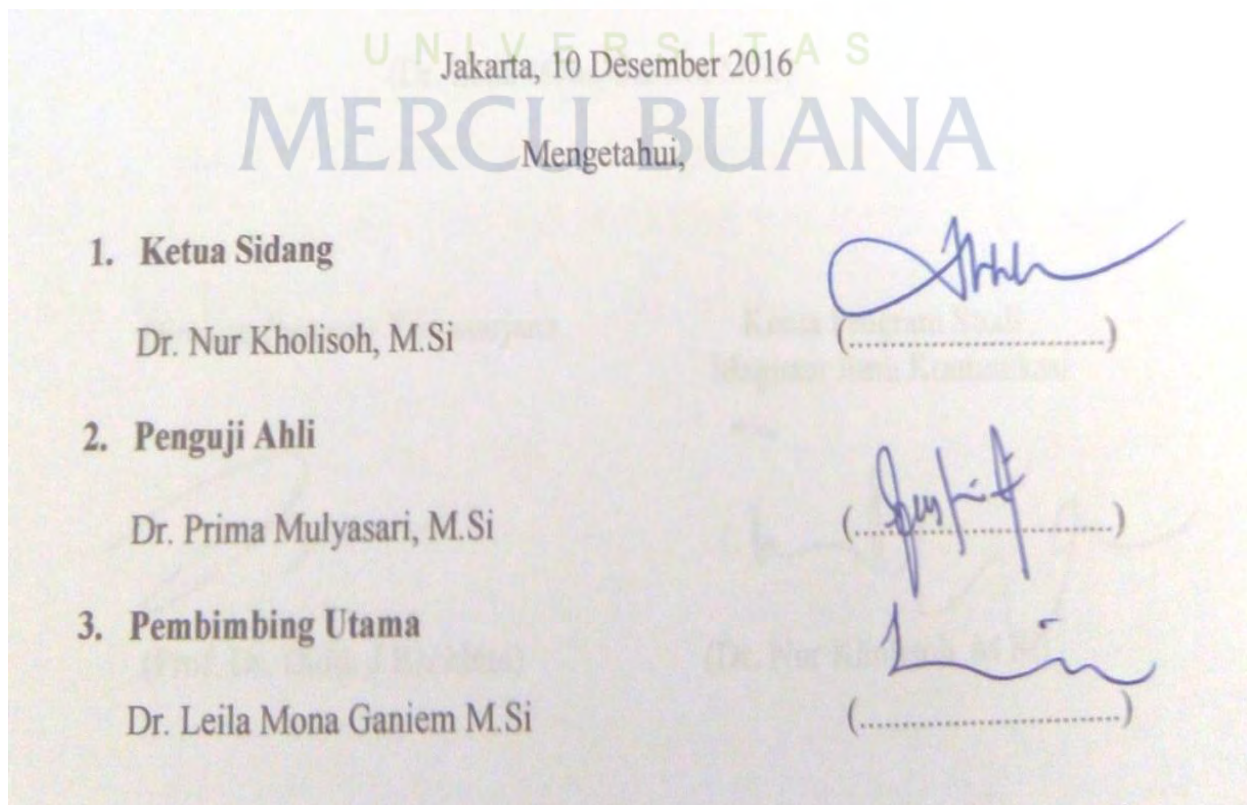 UNIVERSITAS
Jakarta, 10 Desember 2016
MERCU BUANA
Mengetahui,
1. Ketua Sidang
Dr. Nur Kholisoh, M.Si
(..............................)
2. Penguji Ahli
Dr. Prima Mulyasari, M.Si
(..............................)
3. Pembimbing Utama
Dr. Leila Mona Ganiem M.Si
(..............................)